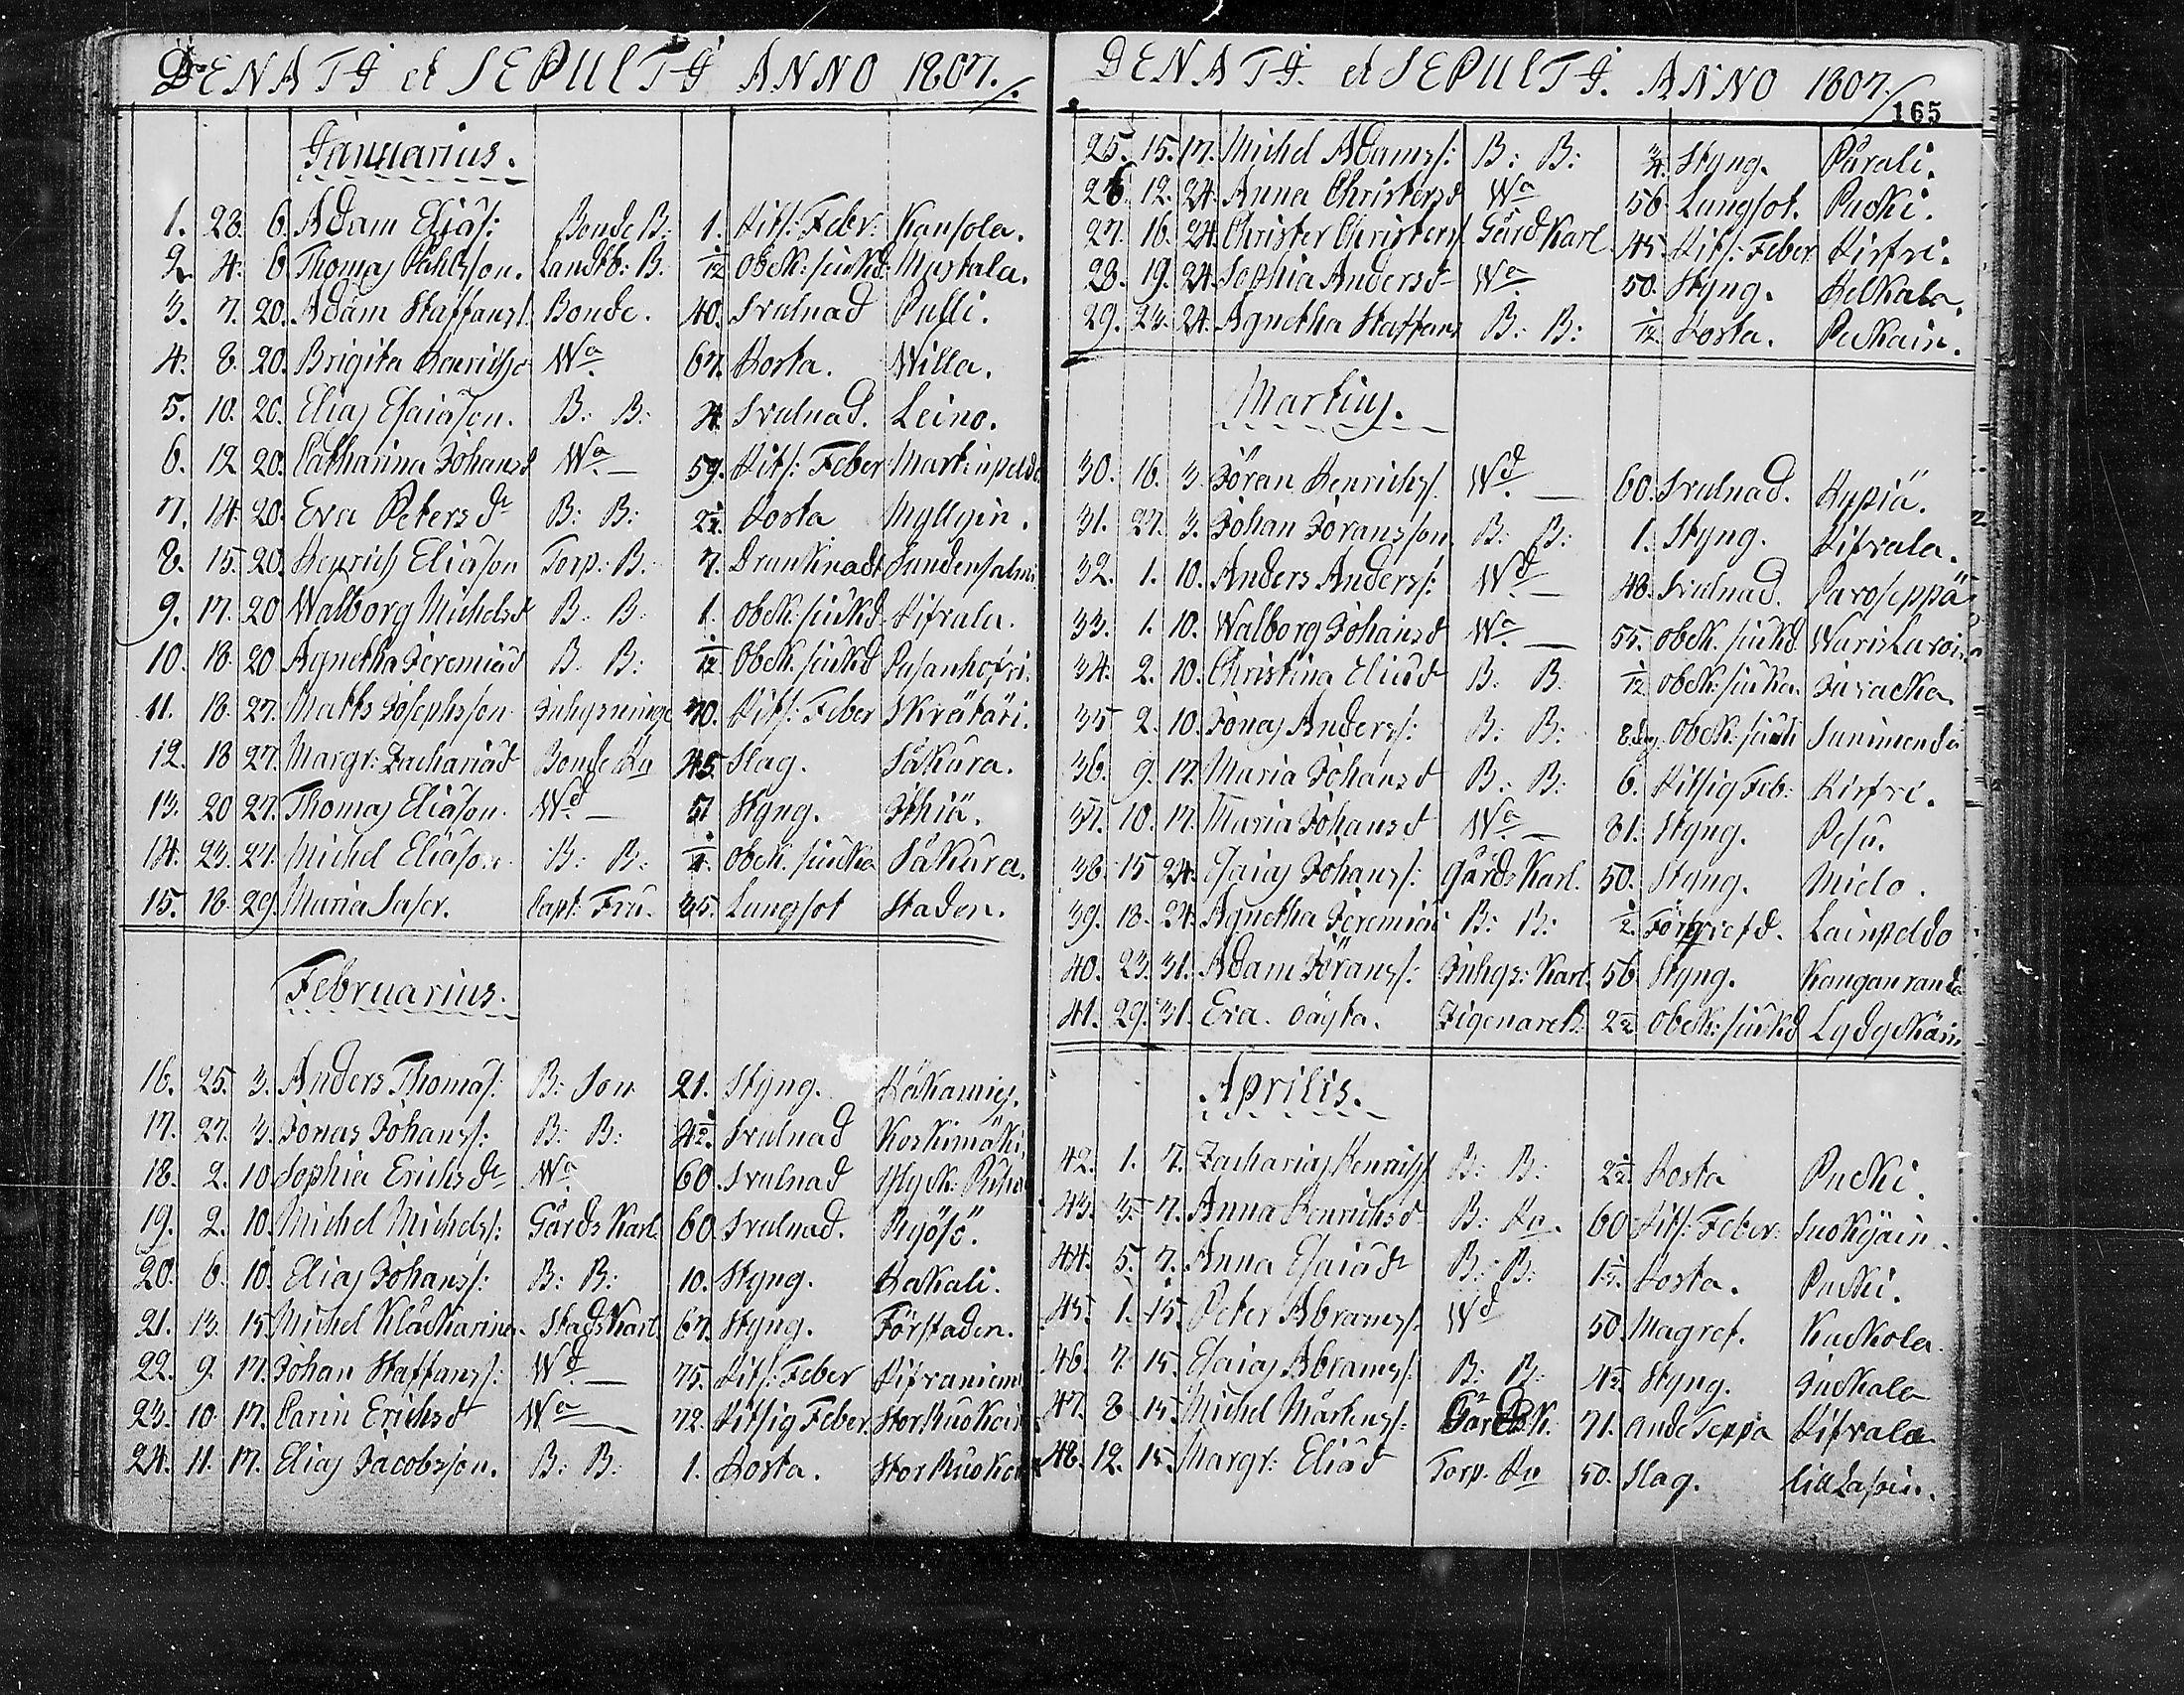 DENATI et SEPULTI ANNO 1807.
Januarius.
1. 28. 6. Adam Eliæs: Bonde B: 1. Hits: Feber: Kansola.
2. 4. 6. Thomas Påhlsson. Landtb: B. 1/12 Obek: siukd: Mustala.
3. 7. 20. Adam Staffans. Bonde. 40. Svulnad Pulli.
4. 8. 20. Brigita Wa 67. Hosta. Willa.
5. 10. 20. Elias Esaiasson. B: B: Svulnad. Leino.
6. 12 20. Catharina Johansd Wa 59. Hits: Feber Martinpeldo
7. 14. 20. Eva Petersdr B: B: 2 1/2 Hosta Myllyin.
8. 15. 20. Henrich Eliason Torp: B. 7. Drunknadt Sundensalmi
9. 17. 20 Walborg Michelsd B: B: 1. Obek: siukd Hifvala.
10. 18. 20 Agnetha Jeremiad B: B: 1/12 Obek: siukd Pasanhofvi.
11. 18. 27. Matts Josephsson Inhysninge 70. Hits: Feber Skrätäri.
12. 18 27. Margr: Zachariad Bonde Hu 45. Slag. Säkura.
13. 20 27. Thomas Eliason. Wd 51 Styng. Ihiä.
14. 23. 27. Michel Eliason B: B: Obek. siuka Säkura.
15. 18. 29. Maria Capt: Fru. 35. Lungsot Staden.
Februarius.
16. 25. 3. Anders Thomas: B: Son 21. Styng.
17. 27. 3. Jonas Johanss: B: B: 4 1/2. Svulnad Koskimäki.
18. 2. 10 Sophia Erichsdr Wa 60. Svulnad
19. 2. 10. Michel Michelss: Gårds Karl. 60. Svulnad. Pyösö.
20. 6. 10. Elias Johanss: B: B: 10. Styng. Hakali.
21. 13. 15 Michel Klåckarina. Stads Karl. 67. Styng. Förstaden.
22. 9. 17. Johan Staffanss: Wd 75. Hits: Feber Hifvaniem
23. 10. 17. Carin Erichsd Wa 72. Hitsig Feber.
24. 11. 17. Elias Jacobsson. B: B: 1. Hosta.
DENATI. et SEPULTI. ANNO 1807.
165
25. 15. 17. Michel Adamss: B: B: 3/4. Styng. Pärali.
26. 12. 24. Anna Christersd Wa 56. Lungsot. Pucki.
27. 16. 24. Christer Christerss Gård Karl 45. Hits: Feber Hirfvi.
28. 19. 24. Sophia Andersdr Wa 50. Styng. Helkala.
29. 23. 24. Agnetha Staffans B: B: 1/12. Hosta. Puckain.
Martius.
30. 16. 3. Jöran Henrichss. Wd 60. Svulnad. Hypiä.
31. 27. 3. Johan Joransson. B: B: 1. Styng. Hifvala.
32. 1. 10. Anders Anderss: Wd 48. Svulnad. Paroseppä
33. 1. 10. Walborg Johansd Wa 55. Obek. siukd
34. 2. 10. Christina Eliædr B: B. 1/12 Obek: siuka. Juracka.
35 2. 10. Jonas Anderss: B: B: 8 dag. Obek: siuk Sunimenda
36. 9. 17. Maria Johansd B: B: 6. Hitsig Feb: Hirfvi.
37. 10. 17. Maria Johansd Wa 81. Styng. Pesu.
38. 15 24. Esaias Johanss: Gårds Karl. 50. Styng. Mielo.
39. 18. 24. Agnetha Jeremiæ B: B: 1/2. Lainpeldo
40. 23. 31. Adam Jöranss: Inhys: Karl. 56 Styng. Kanganranda
41. 29. 31. Eva oäkta. Zigenare B. 2 1/2 Obek: siukd
Aprilis.
42. 1. 7. Zacharias Henrichss B: B: 2 1/2 Hosta Pucki.
43. 3. 7. Anna Henrichsd B: Hu. 60 Hits: Feber. Suokyäin.
44. 5. 7. Anna Esaiædr B: B: 1 1/2. Hosta. Pucki.
45. 1. 15. Peter Abramss. Wd 50. Magref. Kuckola.
46. 7. 15. Esaias Abramss: B: B: 4 1/2. Styng. Juckala
47. 8 15. Michel Mårtenss: Gårds K. 71. Andtäppa Hifvala
48. 12. 15. Margr: Eliæd Torp. Hu 50. Slag. Lill Lasoin.